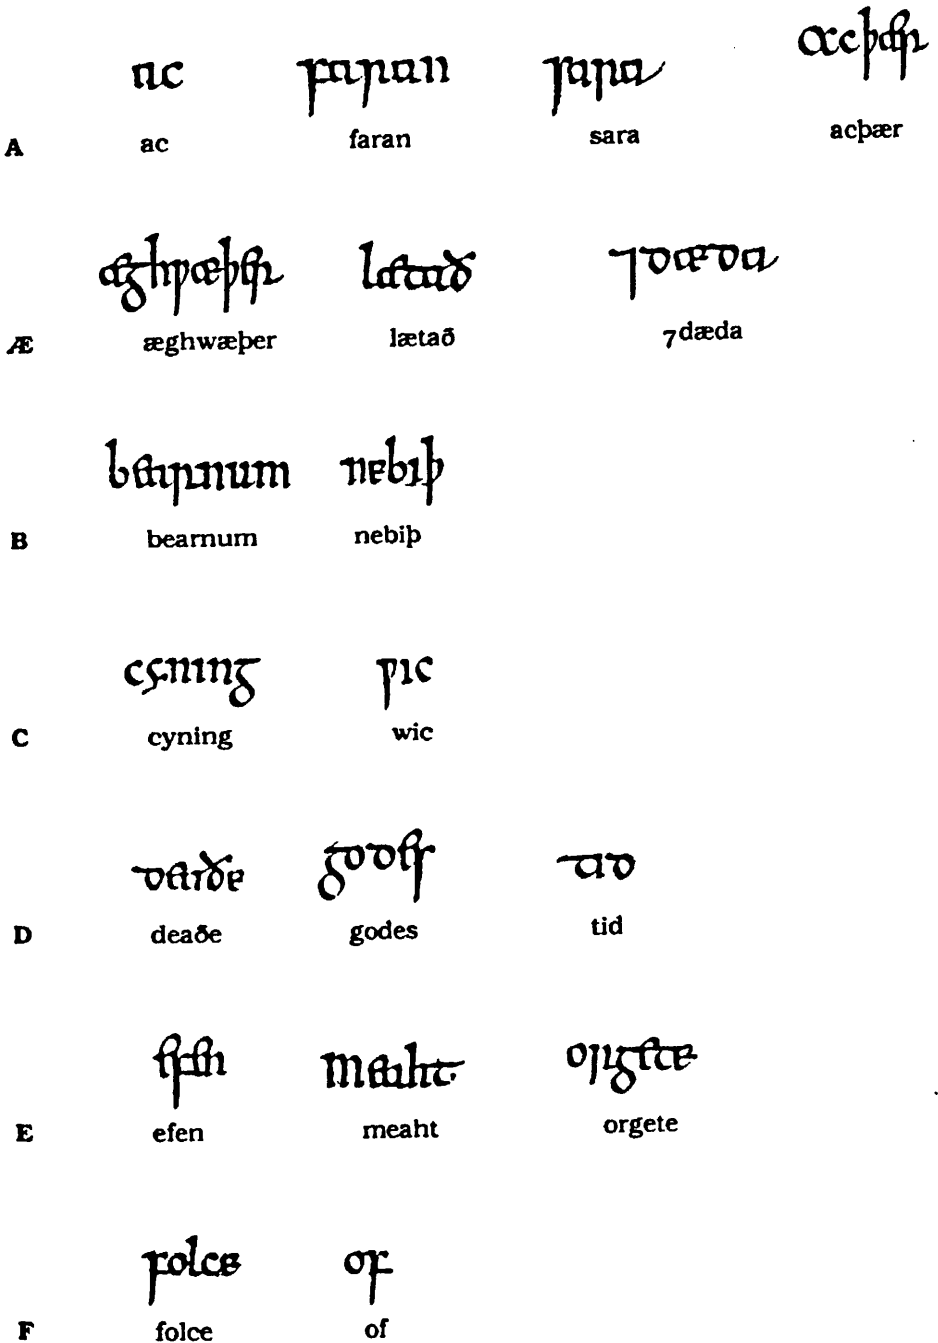 ac faran sara acþær
A ac faran sara acþær
æghƿæþer lætað ⁊dæda
Æ æghwæþer lætað ⁊dæda
bearnum nebiþ
B bearnum nebiþ
cyning ƿic
C cyning wic
deaðe godes tid
D deaðe godes tid
efen meaht orgete
E efen meaht orgete
folce of
F folce of